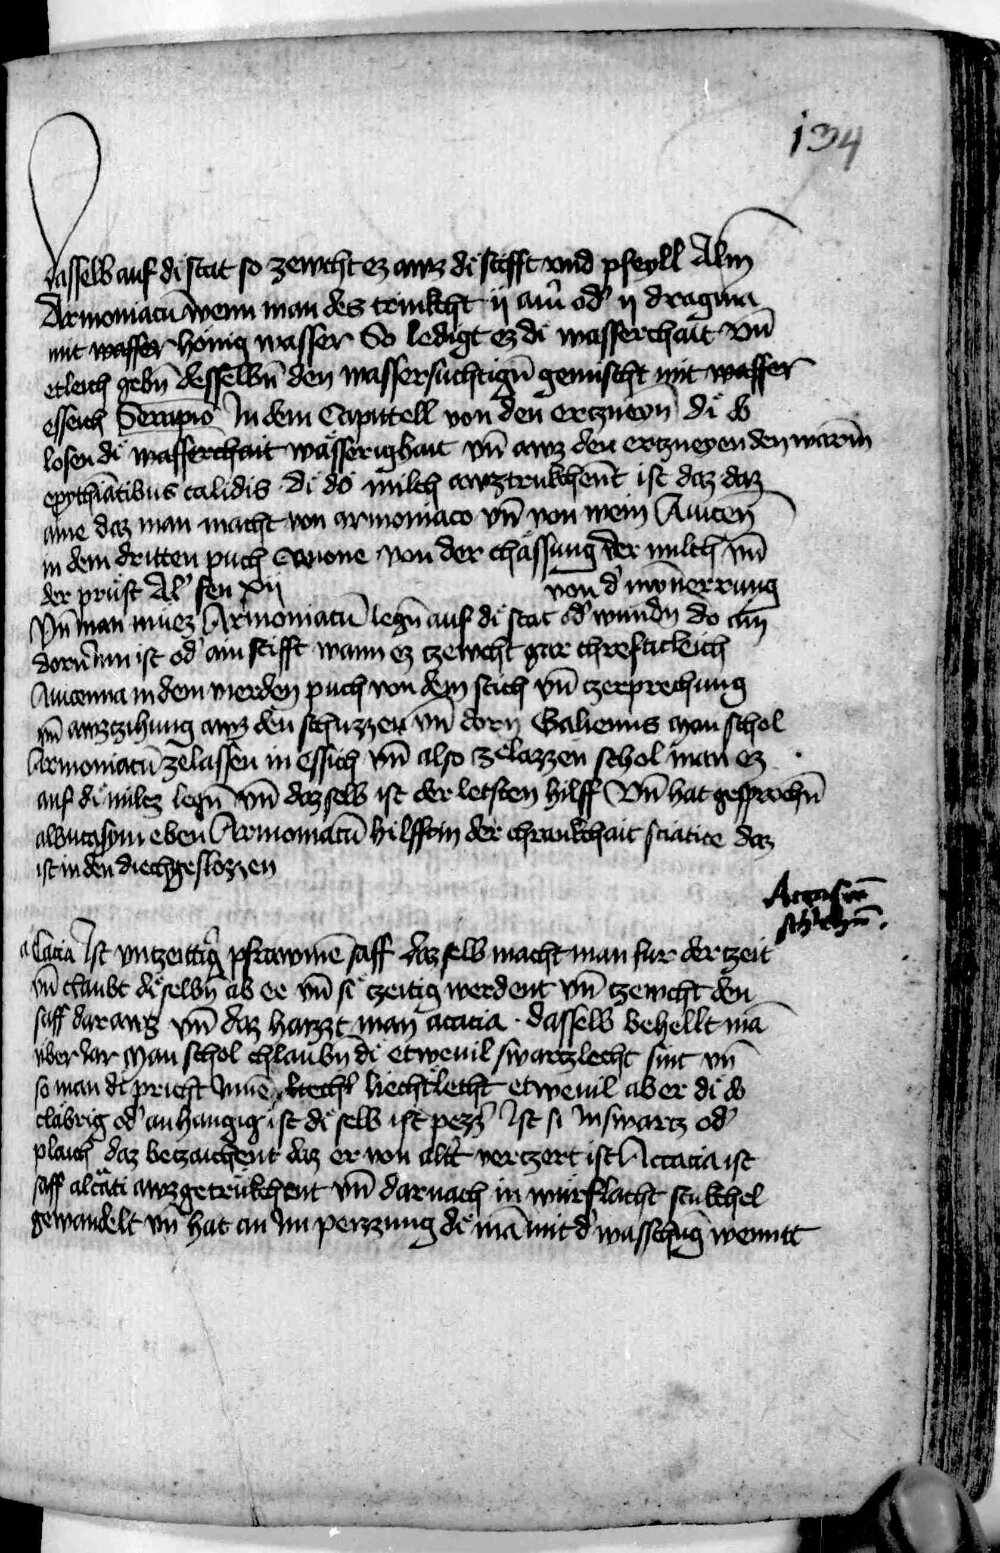 134
dasselb auf di stat so zewcht ez awz di stifft vnd pfeyll Alm̄
Armoniacū wenn man des trinkcht ij aur̄ od' ij dragma
mit waſſer honig wasser So ledigt ez di wasserchait vn̄
etleich gebn̄ desselbn̄ den wassersuchtign̄ gemischt mit waſſer
esseich Serapio In dem Capitell von den ertzneyn̄ di do
losen di wasserchait wässerighait vn̄ awz den ertzneyen den warm̄
epythiatibus calidis di do milch awztrukchent ist daz daz
aine daz man macht von armoniaco vn̄ von wein Auicen̄
in dem dritten puch Canone von der chässung der milch vn̄
der prüst Al' fen xij von d'
Vn̄ man muez Armoniacū legn̄ auf di stat od' wundn̄ do ain̄
dorn̄ inn ist od' ain stifft wann ez tzewcht gar chrefticleich
Auicenna in dem vierden puch von dem stich vn̄ tzerprechung
vn̄ awztzihung awz den schuzzen vn̄ dorn̄ Galienus man schol
Armoniacū zelassen in essich vn̄ also zelazzen schol man ez
auf di miltz legn̄ vn̄ daz selb ist der letsten hilff Vn̄ hat gesprochn̄
albucasym eben Armoniacū hilfft in der chrankchait sciatice daz
ist in den diech geslozzen
a Cacia Ist vntzeittig' pfrawmē saff daz selb macht man fur der tzeit
vn̄ claubt di selbn̄ ab ee vn̄ si tzeitig werdent vn̄ tzewcht den
saff darawz vn̄ daz haizzt man acacia · dasselb behellt mā
vber iar Man schol chlaubn̄ di etweuil swartzlecht sint vn̄
so man di pricht Innē liechtlecht etweuil aber di do
clabrig od' anhangig ist di selb ist pezz' Ist si In swartz od'
plaich daz betzaichent daz er von alt' vertzert ist Accacia ist
saff alcati awzgetrukchent vn̄ darnach in würflacht stukchel
gewandelt vn̄ hat an Im peizzung di mā mit d' waschūg wenntt